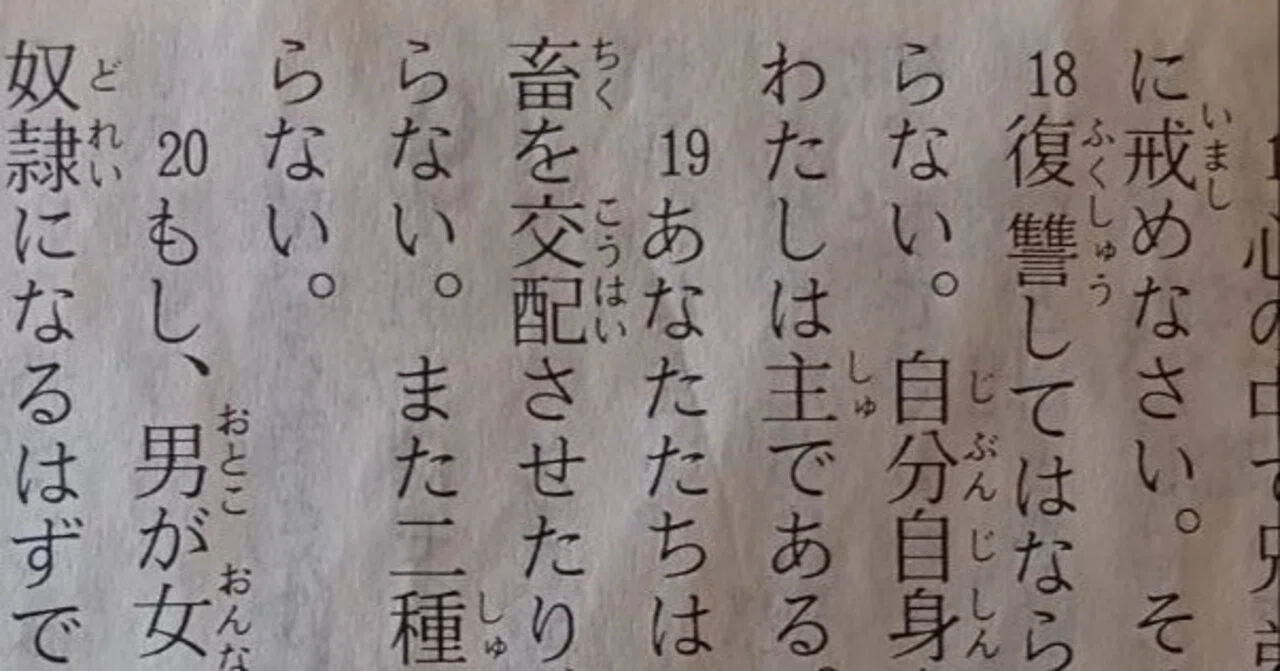 心の中で兄
に戒めなさい。そ
18復讐してはなら
らない。自分自身
わたしは主である。
19あなたたちは
畜を交配させたり
らない。また二種
らない。
20もし、男が女
奴隷になるはずで